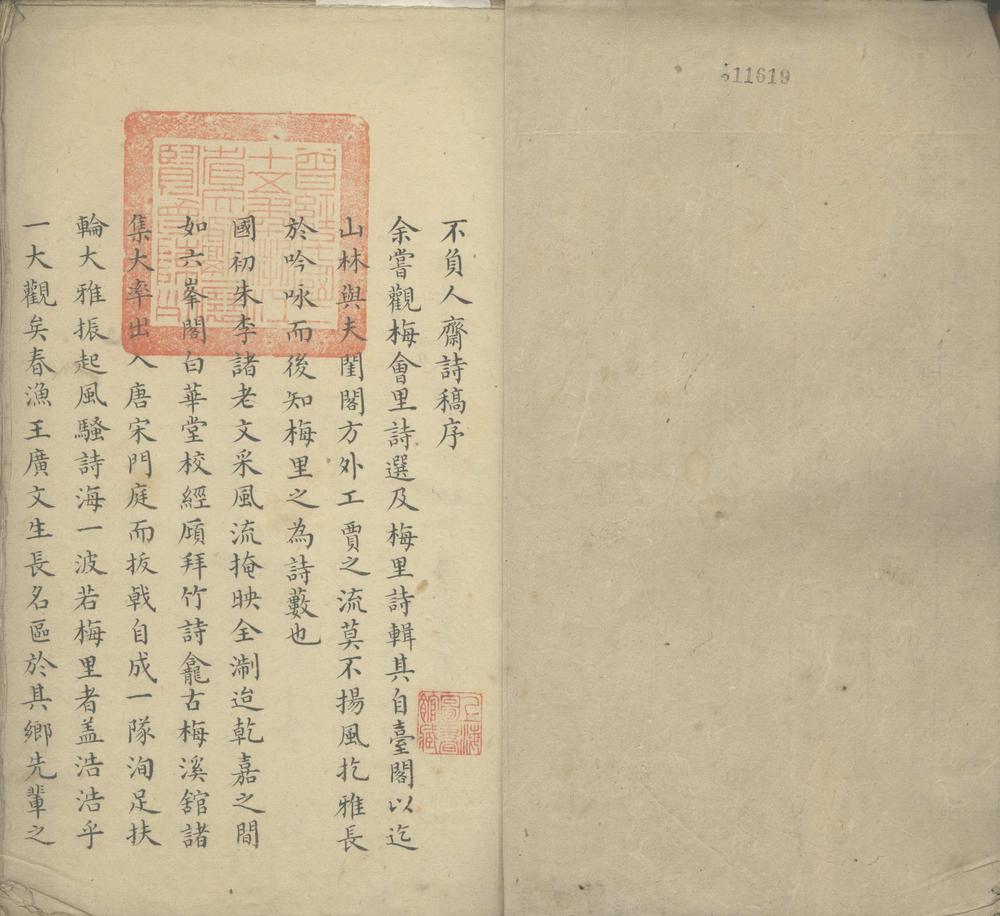 不負人齋詩稿序
余嘗觀梅會里詩選及梅里詩輯其自臺閣以迄
山林與夫閨閣方外工賈之流莫不揚風扢雅長
於吟咏而後知梅里之為詩藪也
國初朱李諸老文采風流掩映全淛迨乾嘉之間
如六峯閣白華堂校經廎拜竹詩龕古梅溪舘諸
集大率出入唐宋門庭而拔戟自成一隊洵足扶
輪大雅振起風騷詩海一波若梅里者盖浩浩乎
一大觀矣春漁王廣文生長名區於其鄉先輩之
上海圖書館藏
511619